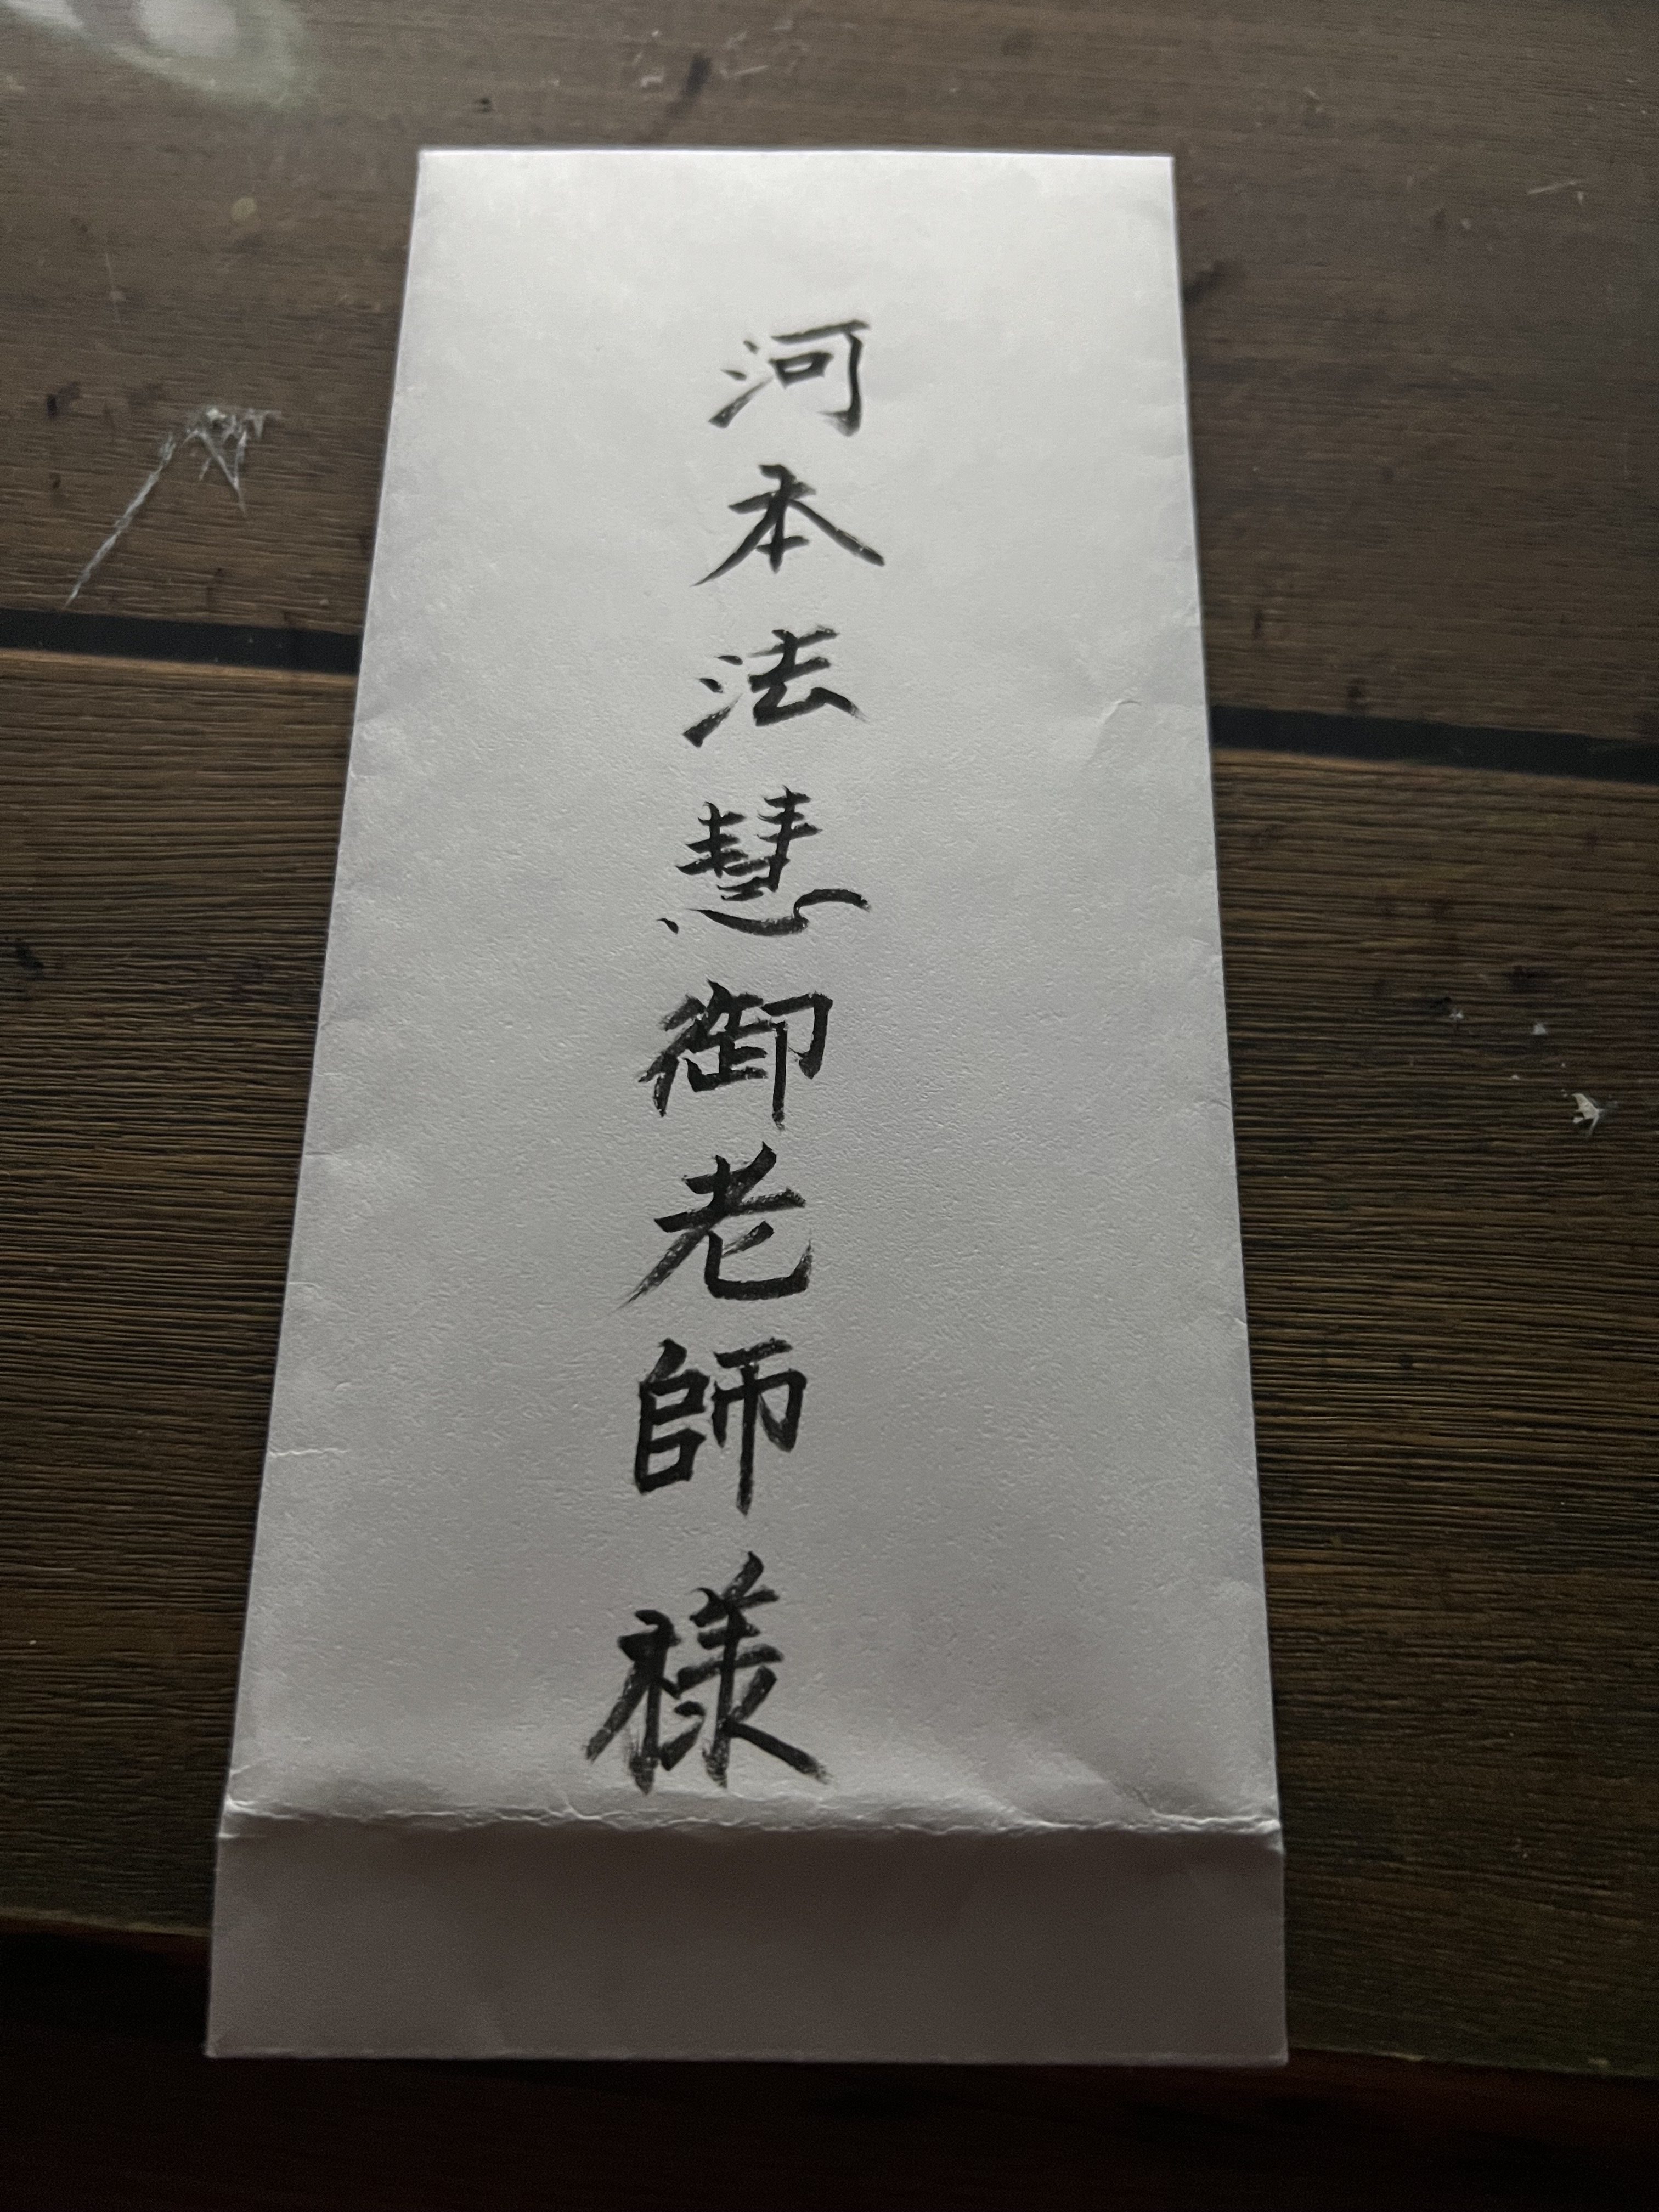 河本法慧御老師様